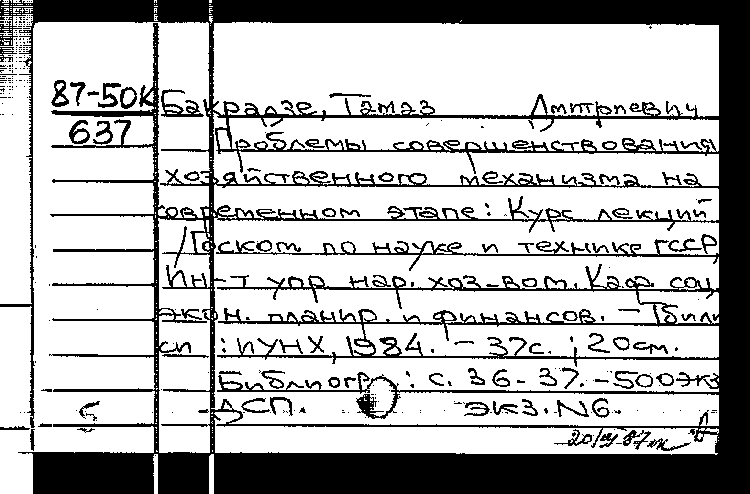 87-50К Бакрадзе, Тамаз Дмитриевич
637 Проблемы совершенствования
хозяйственного механизма на
современном этапе: Курс лекций
/Госком по науке и технике ГССР,
Ин-т упр. нар. хоз-вом. Каф. соц.
экон. планир. и финансов. - Тбили
си : ИУНХ, 1984. - 37с. ; 20см.
Библиогр.: с. 36-37. - 500экз
ДСП. ЭКЗ. N6.